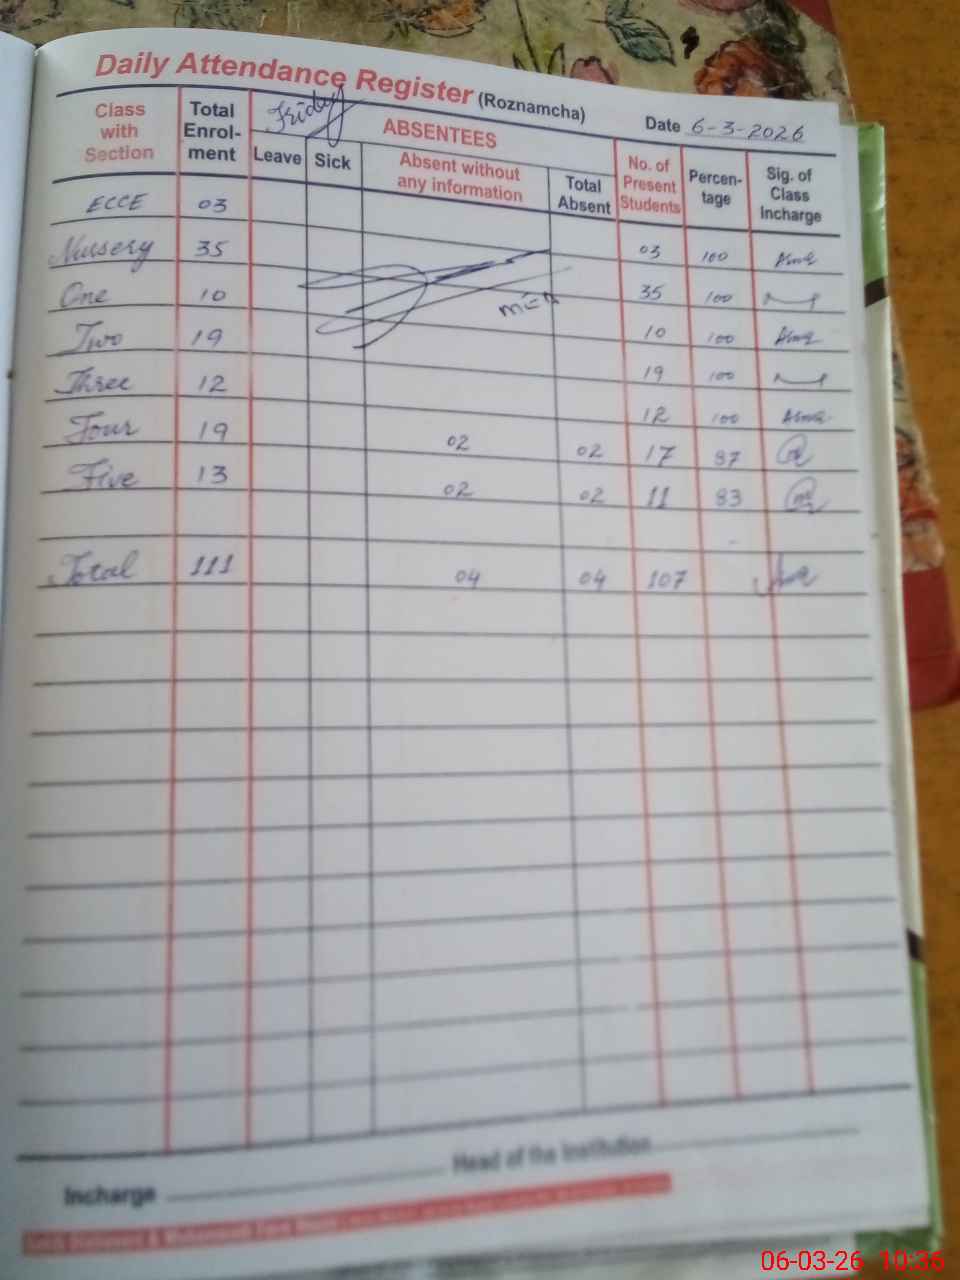 Daily Attendance Register (Roznamcha)
Friday
Date 6-3-2026
Class with Section Total Enrol-ment ABSENTEES No. of Present Students Percen-tage Sig. of Class Incharge
Leave Sick Absent without any information Total Absent
ECCE 03 03 100
Nursery 35 35 100
One 10 10 100
Two 19 19 100
Three 12 12 100
Four 19 02 02 17 87
Five 13 02 02 11 83
Total 111 04 04 107
Head of the Institution
Incharge
06-03-26 10:36